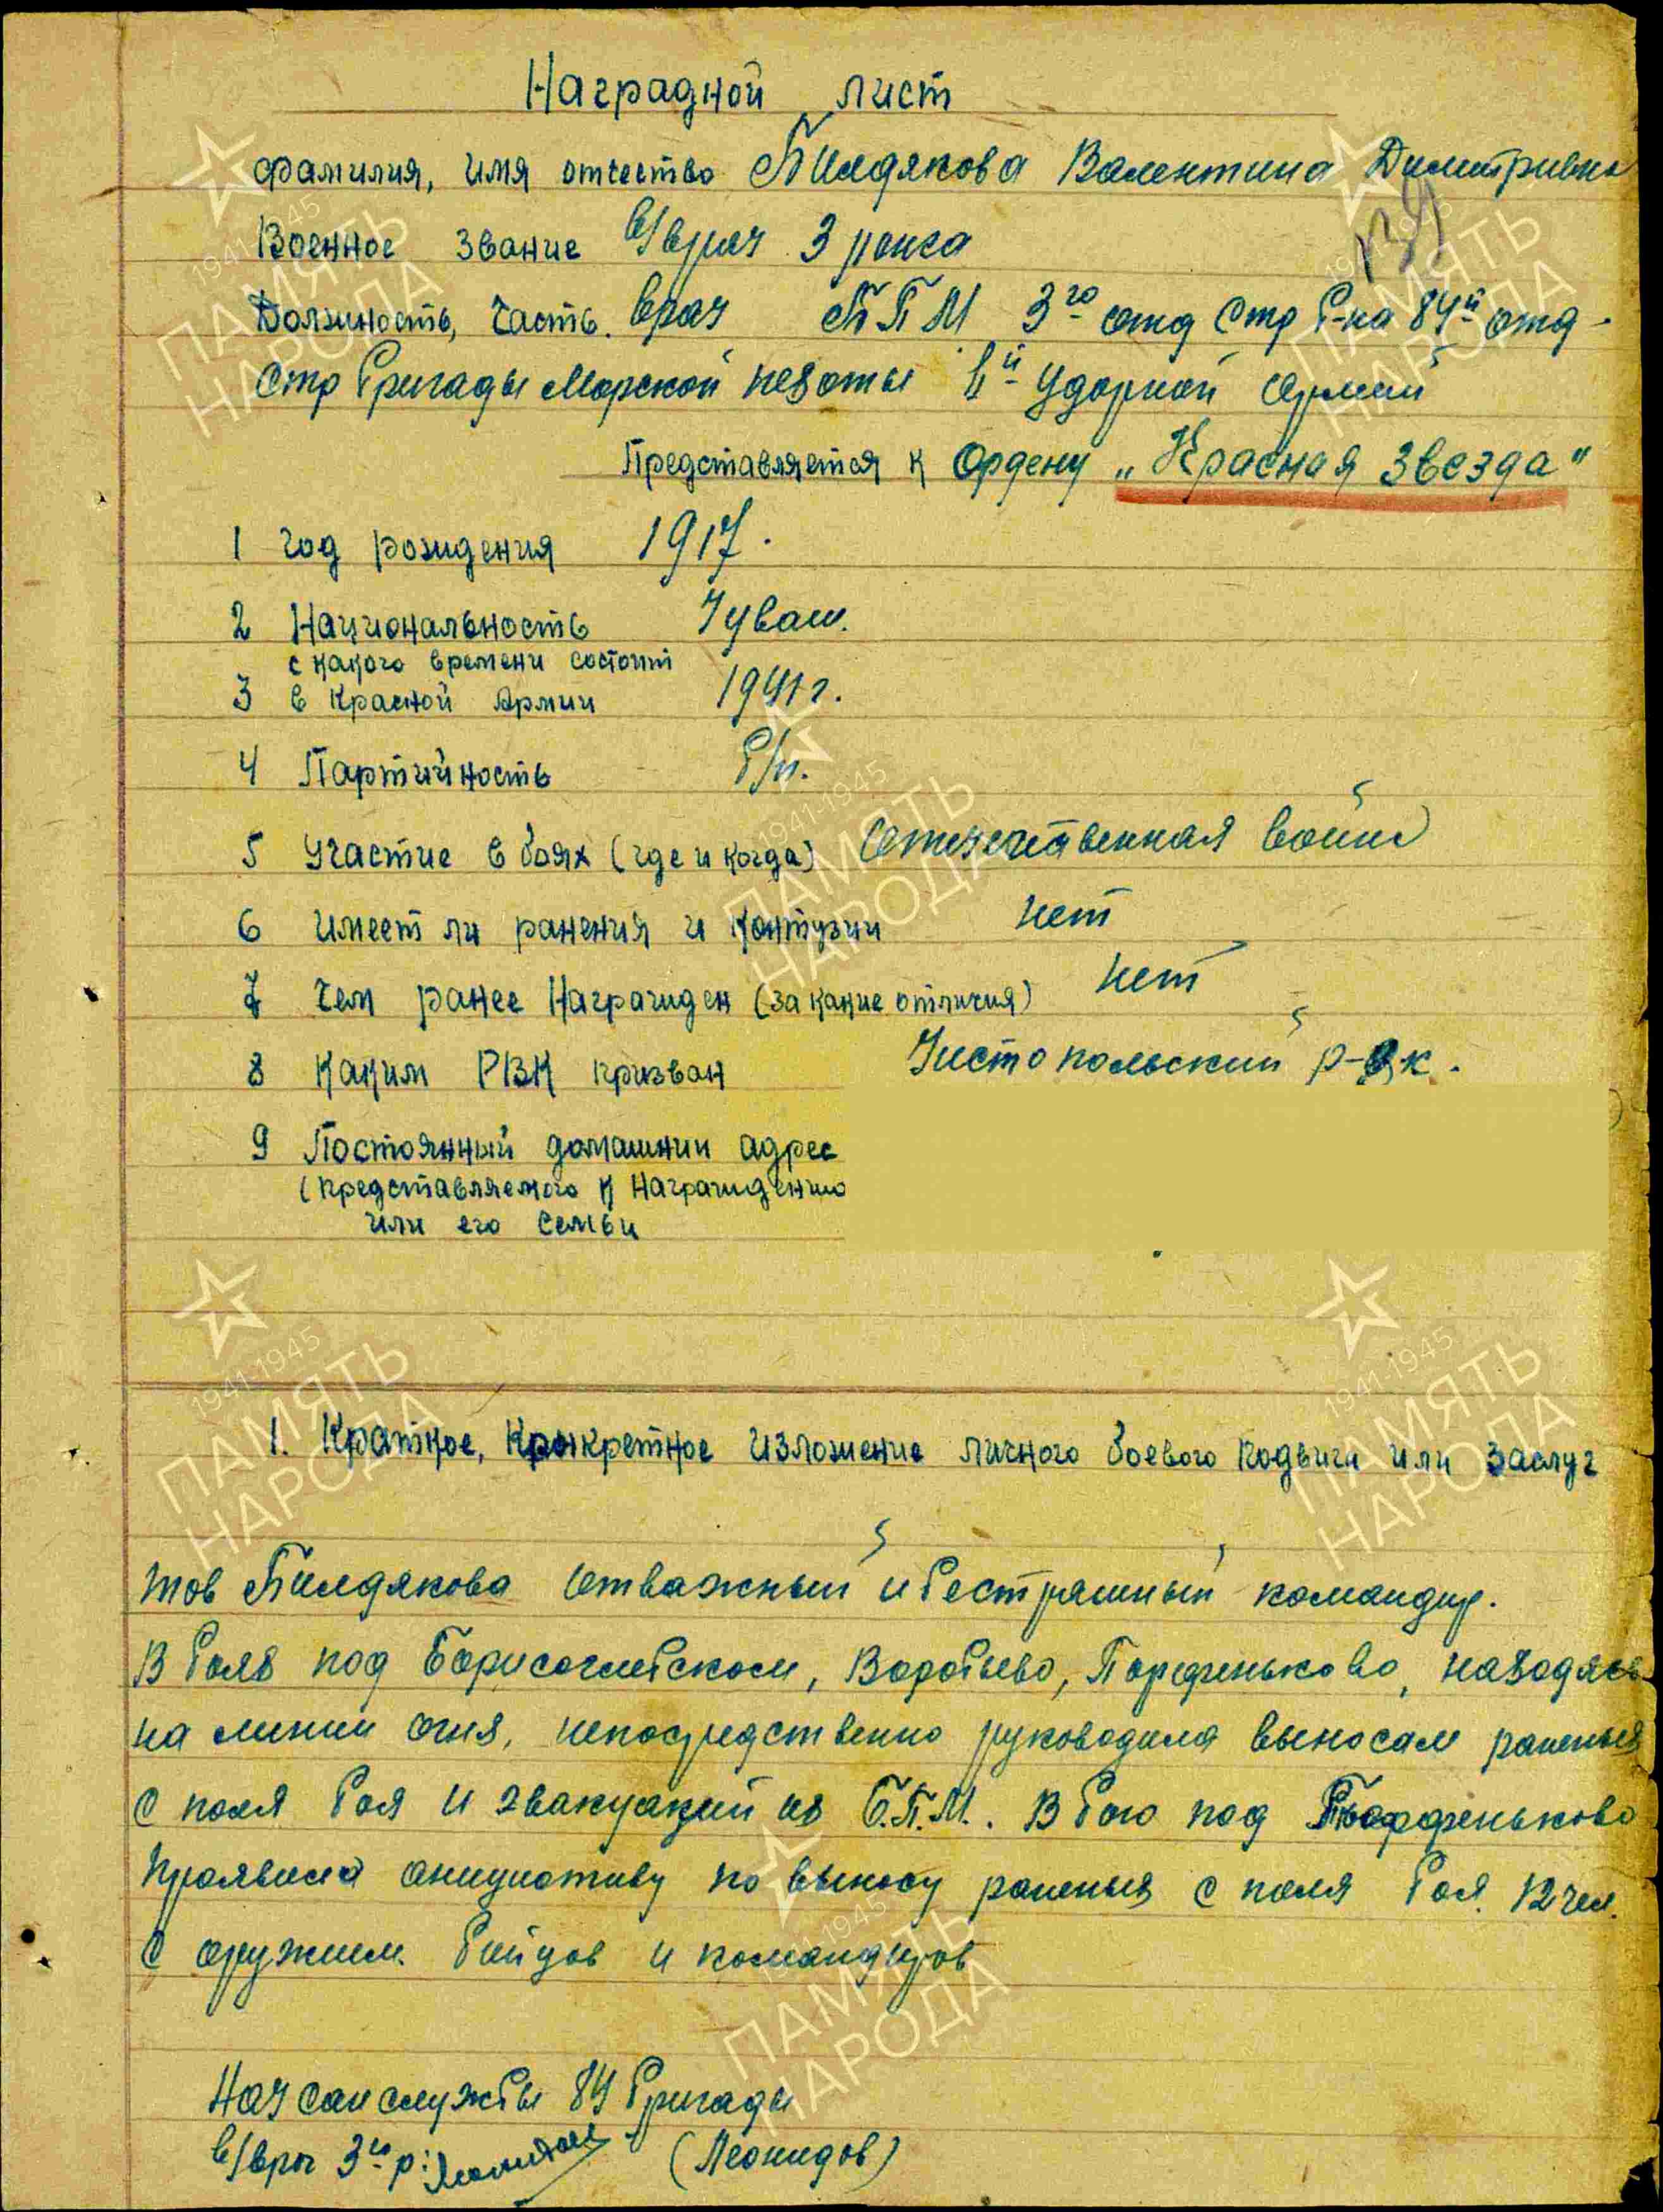 Наградной лист
Фамилия, имя отчество Билдякова Валентина Димитривна
139
Военное звание в/врач 3 ранга
Должность, часть. врач БПМ 3го отд Стр б-на 84й отд
Стр бригады Морской пехоты 1й Ударной Армии
Представляется к Ордену „Красная Звезда"
1 год рождения 1917.
2 Национальность Чуваш.
с какого времени состоит
3 в Красной Армии 1941г.
4 Партийность б/п.
5 Участие в боях (где и когда) Отечественная война
6 имеет ли ранения и контузии нет
7 чем ранее награжден (за какие отличия) нет
8 Каким РВК призван Чистопольский р-вк.
9 Постоянный домашнии адрес
(представляемого к награждению
или его семьи
1. Краткое, конкретное изложение личного боевого подвига или заслуг
тов Билдякова отважный и бестрашный командир.
В боях под Борисоглебском, Воробьево, Парфеньково, находясь
на линии огня, непосредственно руководила выносам раненых
с поля боя и эвакуаций их Б.П.М. В бою под Парфеньково
проявила анициативу по выносу раненых с поля боя. 12 чел.
с оружием. бойцов и командиров
Нач сан службы 84 бригады
в/врач 3го р. (Леонидов)
1941-1945
ПАМЯТЬ
НАРОДА
1941-1945
ПАМЯТЬ
НАРОДА
1941-1945
ПАМЯТЬ
НАРОДА
1941-1945
ПАМЯТЬ
НАРОДА
1941-1945
ПАМЯТЬ
НАРОДА
1941-1945
ПАМЯТЬ
НАРОДА